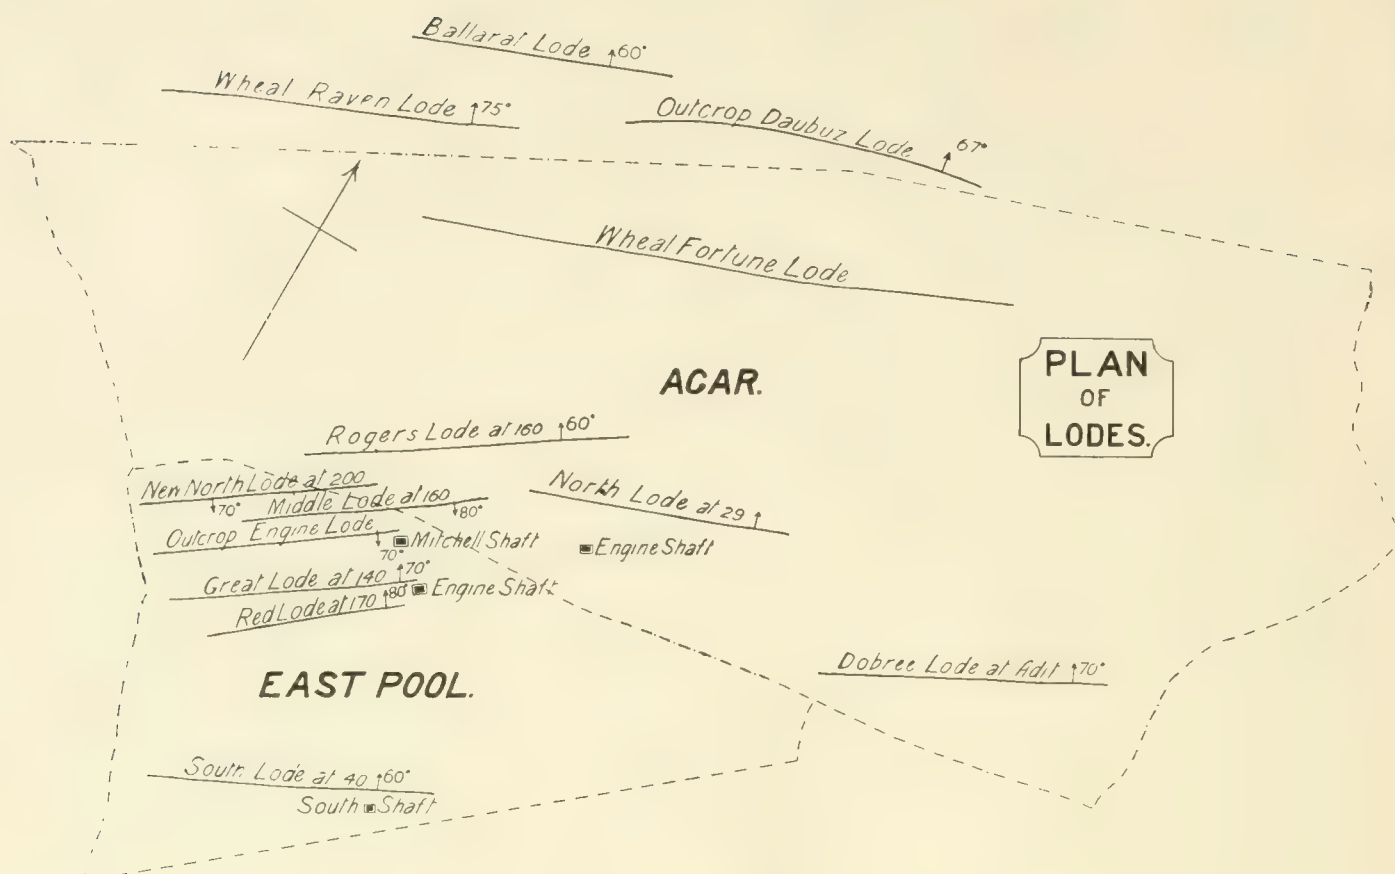 Ballarat Lode 60°
Wheal Raven Lode 75°
Outcrop Daubuz Lode
67°
Wheal Fortune Lode
ACAR.
PLAN
OF
LODES.
Rogers Lode at 160 60°
New North Lode at 200
70°
Middle Lode at 160
80°
North Lode at 29
Outcrop Engine Lode
70°
Mitchell Shaft
Engine Shaft
Great Lode at 140 70°
Engine Shaft
Red Lode at 170 80°
EAST POOL.
Dobree Lode at Adit 70°
South Lode at 40 60°
South Shaft